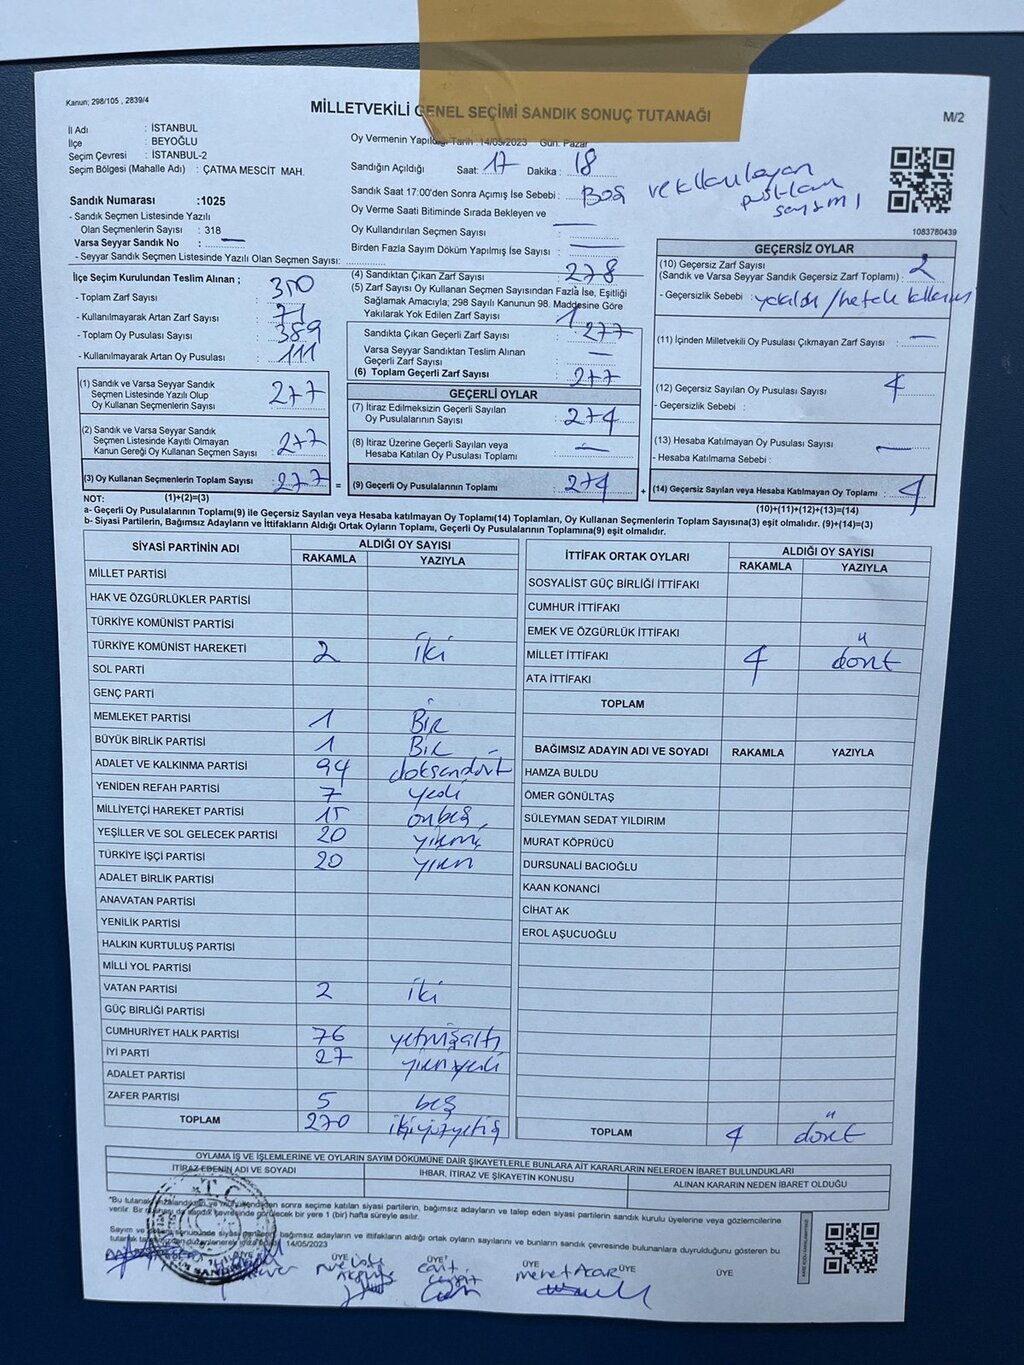 Kanun; 298/105 , 2839/4
MİLLETVEKİLİ GENEL SEÇİMİ SANDIK SONUÇ TUTANAĞI
M/2
İl Adı : İSTANBUL
İlçe : BEYOĞLU
Seçim Çevresi : İSTANBUL-2
Seçim Bölgesi (Mahalle Adı) : ÇATMA MESCİT MAH.
Sandık Numarası :1025
- Sandık Seçmen Listesinde Yazılı
Olan Seçmenlerin Sayısı : 318
Varsa Seyyar Sandık No : —
- Seyyar Sandık Seçmen Listesinde Yazılı Olan Seçmen Sayısı:
Oy Vermenin Yapıldığı Tarih : 14/05/2023 Gün: Pazar
Sandığın Açıldığı Saat: 17 Dakika : 18
Sandık Saat 17:00'den Sonra Açımış İse Sebebi : Boş ve kullanılayan
pusulanın
sayımı
Oy Verme Saati Bitiminde Sırada Bekleyen ve
Oy Kullandırılan Seçmen Sayısı : —
Birden Fazla Sayım Döküm Yapılmış İse Sayısı : —
1083780439
İlçe Seçim Kurulundan Teslim Alınan ;
- Toplam Zarf Sayısı : 350
- Kullanılmayarak Artan Zarf Sayısı : 71
- Toplam Oy Pusulası Sayısı : 389
- Kullanılmayarak Artan Oy Pusulası : 111
(1) Sandık ve Varsa Seyyar Sandık
Seçmen Listesinde Yazılı Olup
Oy Kullanan Seçmenlerin Sayısı : 277
(2) Sandık ve Varsa Seyyar Sandık
Seçmen Listesinde Kayıtlı Olmayan
Kanun Gereği Oy Kullanan Seçmen Sayısı : 277
(3) Oy Kullanan Seçmenlerin Toplam Sayısı : 277
(4) Sandıktan Çıkan Zarf Sayısı : 278
(5) Zarf Sayısı Oy Kullanan Seçmen Sayısından Fazla İse, Eşitliği
Sağlamak Amacıyla; 298 Sayılı Kanunun 98. Maddesine Göre
Yakılarak Yok Edilen Zarf Sayısı : 1
Sandıkta Çıkan Geçerli Zarf Sayısı : 277
Varsa Seyyar Sandıktan Teslim Alınan
Geçerli Zarf Sayısı : —
(6) Toplam Geçerli Zarf Sayısı : 277
GEÇERLİ OYLAR
(7) İtiraz Edilmeksizin Geçerli Sayılan
Oy Pusulalarının Sayısı : 274
(8) İtiraz Üzerine Geçerli Sayılan veya
Hesaba Katılan Oy Pusulası Toplamı : —
= (9) Geçerli Oy Pusulalarının Toplamı : 274
GEÇERSİZ OYLAR
(10) Geçersiz Zarf Sayısı
(Sandık ve Varsa Seyyar Sandık Geçersiz Zarf Toplamı) : 2
- Geçersizlik Sebebi :
(11) İçinden Milletvekili Oy Pusulası Çıkmayan Zarf Sayısı : —
(12) Geçersiz Sayılan Oy Pusulası Sayısı : 4
- Geçersizlik Sebebi :
(13) Hesaba Katılmayan Oy Pusulası Sayısı : —
- Hesaba Katılmama Sebebi :
+ (14) Geçersiz Sayılan veya Hesaba Katılmayan Oy Toplamı : 4
NOT: (1)+(2)=(3)
(10)+(11)+(12)+(13)=(14)
a- Geçerli Oy Pusulalarının Toplamı(9) ile Geçersiz Sayılan veya Hesaba katılmayan Oy Toplamı(14) Toplamları, Oy Kullanan Seçmenlerin Toplam Sayısına(3) eşit olmalıdır. (9)+(14)=(3)
b- Siyasi Partilerin, Bağımsız Adayların ve İttifakların Aldığı Ortak Oyların Toplamı, Geçerli Oy Pusulalarının Toplamına(9) eşit olmalıdır.
SİYASİ PARTİNİN ADI ALDIĞI OY SAYISI
RAKAMLA YAZIYLA
MİLLET PARTİSİ
HAK VE ÖZGÜRLÜKLER PARTİSİ
TÜRKİYE KOMÜNİST PARTİSİ
TÜRKİYE KOMÜNİST HAREKETİ 2 iki
SOL PARTİ
GENÇ PARTİ
MEMLEKET PARTİSİ 1 Bir
BÜYÜK BİRLİK PARTİSİ 1 Bir
ADALET VE KALKINMA PARTİSİ 94 doksandört
YENİDEN REFAH PARTİSİ 7 yedi
MİLLİYETÇİ HAREKET PARTİSİ 15 onbeş
YEŞİLLER VE SOL GELECEK PARTİSİ 20 yirmi
TÜRKİYE İŞÇİ PARTİSİ 20 yirmi
ADALET BİRLİK PARTİSİ
ANAVATAN PARTİSİ
YENİLİK PARTİSİ
HALKIN KURTULUŞ PARTİSİ
MİLLİ YOL PARTİSİ
VATAN PARTİSİ 2 iki
GÜÇ BİRLİĞİ PARTİSİ
CUMHURİYET HALK PARTİSİ 76 yetmişaltı
İYİ PARTİ 27 yirmiyedi
ADALET PARTİSİ
ZAFER PARTİSİ 5 beş
TOPLAM 270 ikiyüzyetmiş
İTTİFAK ORTAK OYLARI ALDIĞI OY SAYISI
RAKAMLA YAZIYLA
SOSYALİST GÜÇ BİRLİĞİ İTTİFAKI
CUMHUR İTTİFAKI
EMEK VE ÖZGÜRLÜK İTTİFAKI
MİLLET İTTİFAKI 4 dört
ATA İTTİFAKI
TOPLAM
BAĞIMSIZ ADAYIN ADI VE SOYADI RAKAMLA YAZIYLA
HAMZA BULDU
ÖMER GÖNÜLTAŞ
SÜLEYMAN SEDAT YILDIRIM
MURAT KÖPRÜCÜ
DURSUNALİ BACIOĞLU
KAAN KONANCİ
CİHAT AK
EROL AŞUCUOĞLU
TOPLAM 4 dört
OYLAMA İŞ VE İŞLEMLERİNE VE OYLARIN SAYIM DÖKÜMÜNE DAİR ŞİKAYETLERLE BUNLARA AİT KARARLARIN NELERDEN İBARET BULUNDUKLARI
İTİRAZ EDENİN ADI VE SOYADI İHBAR, İTİRAZ VE ŞİKAYETİN KONUSU ALINAN KARARIN NEDEN İBARET OLDUĞU
T.C
14/05/2023
ÜYE ÜYE ÜYE ÜYE ÜYE ÜYE
Mehmet Acar